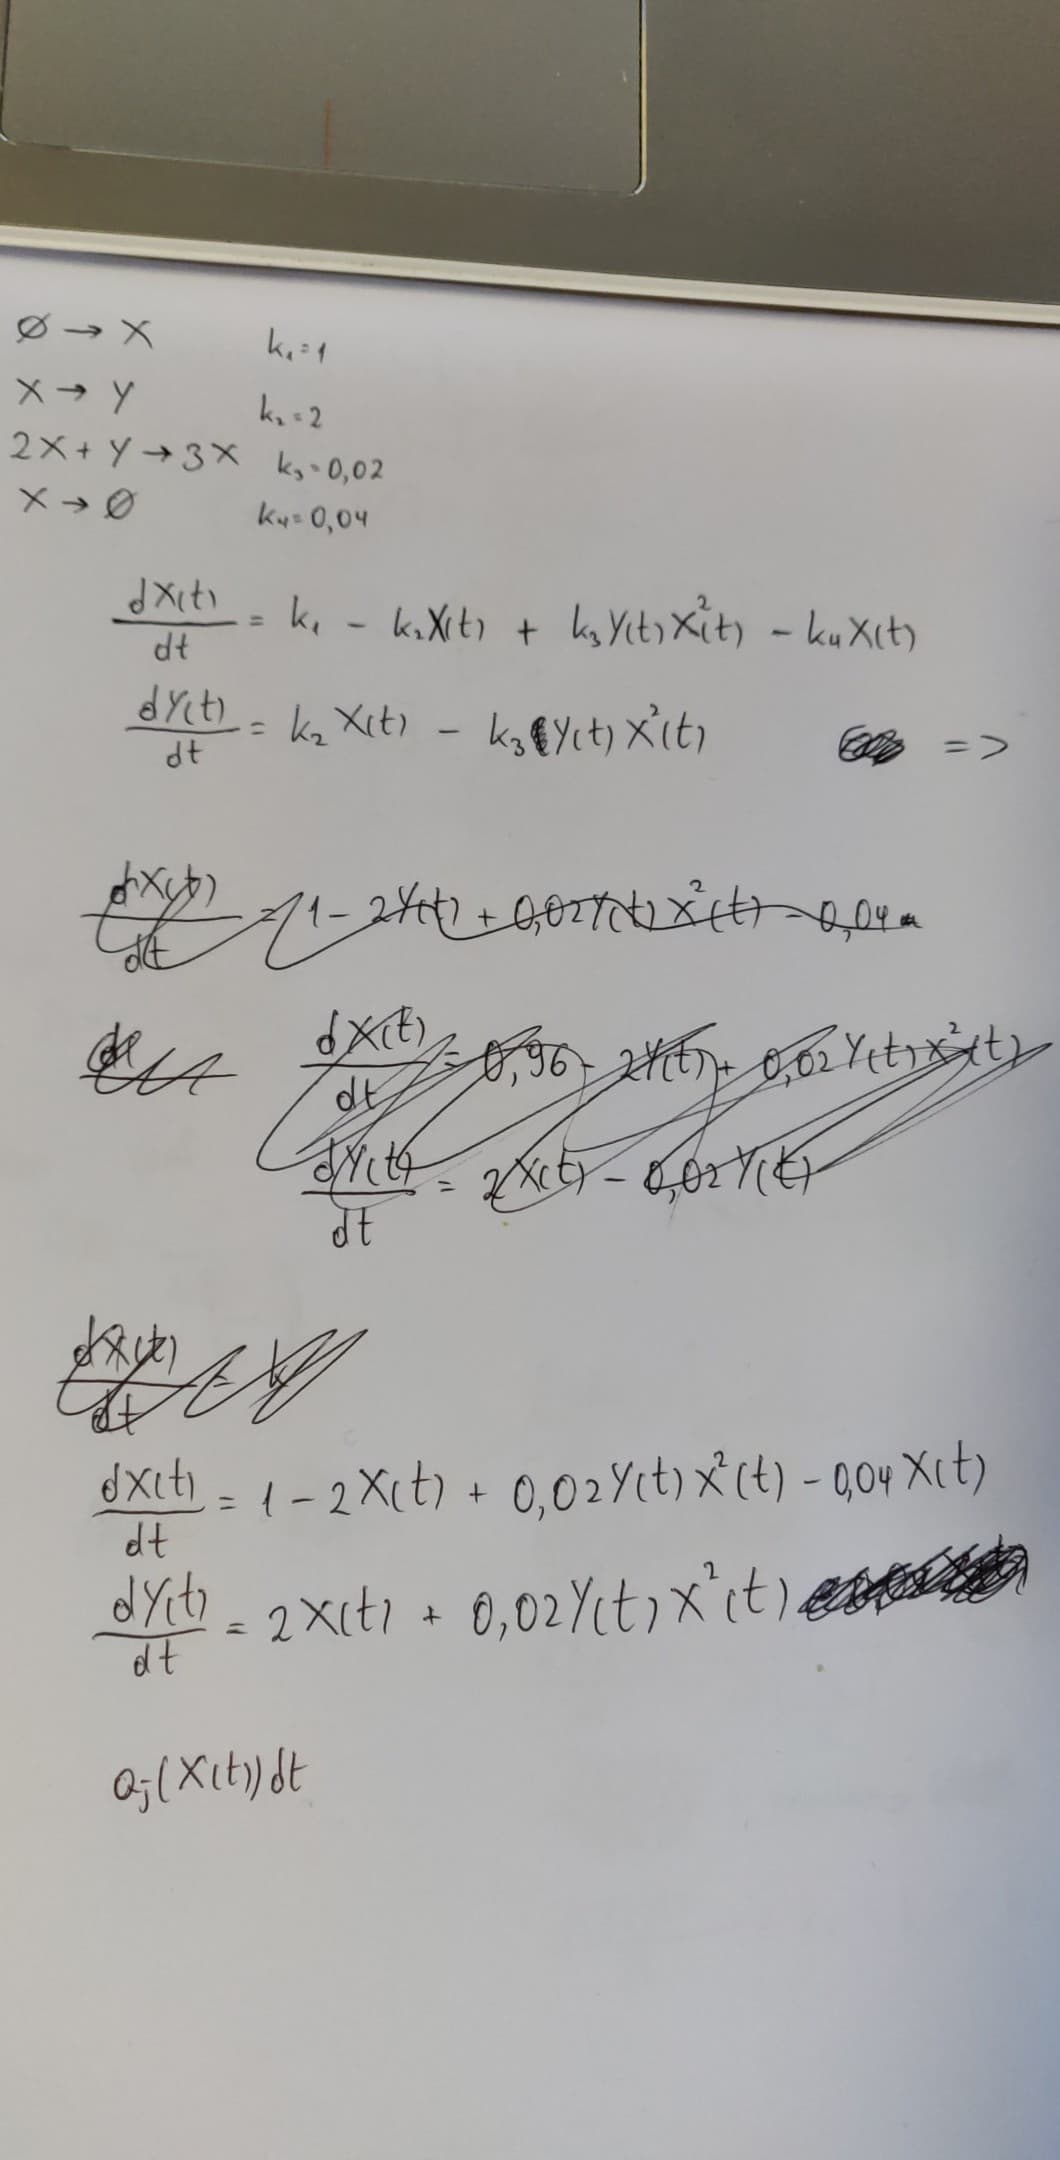 ∅ → X k₁=1
X → Y k₂=2
2X + Y → 3X k₃=0,02
X → ∅ k₄=0,04
dX(t)/dt = k₁ - k₂X(t) + k₃Y(t)X²(t) - k₄X(t)
dY(t)/dt = k₂X(t) - k₃Y(t)X²(t) =>
dX(t)/dt = 1 - 2Y(t) + 0,02Y(t)X²(t) - 0,04
dX(t)/dt = 0,96 - 2Y(t) + 0,02Y(t)X²(t)
dY(t)/dt = 2X(t) - 0,02Y(t)
dX(t)/dt =
dX(t)/dt = 1 - 2X(t) + 0,02Y(t)X²(t) - 0,04X(t)
dY(t)/dt = 2X(t) + 0,02Y(t)X²(t)
aⱼ(X(t))dt